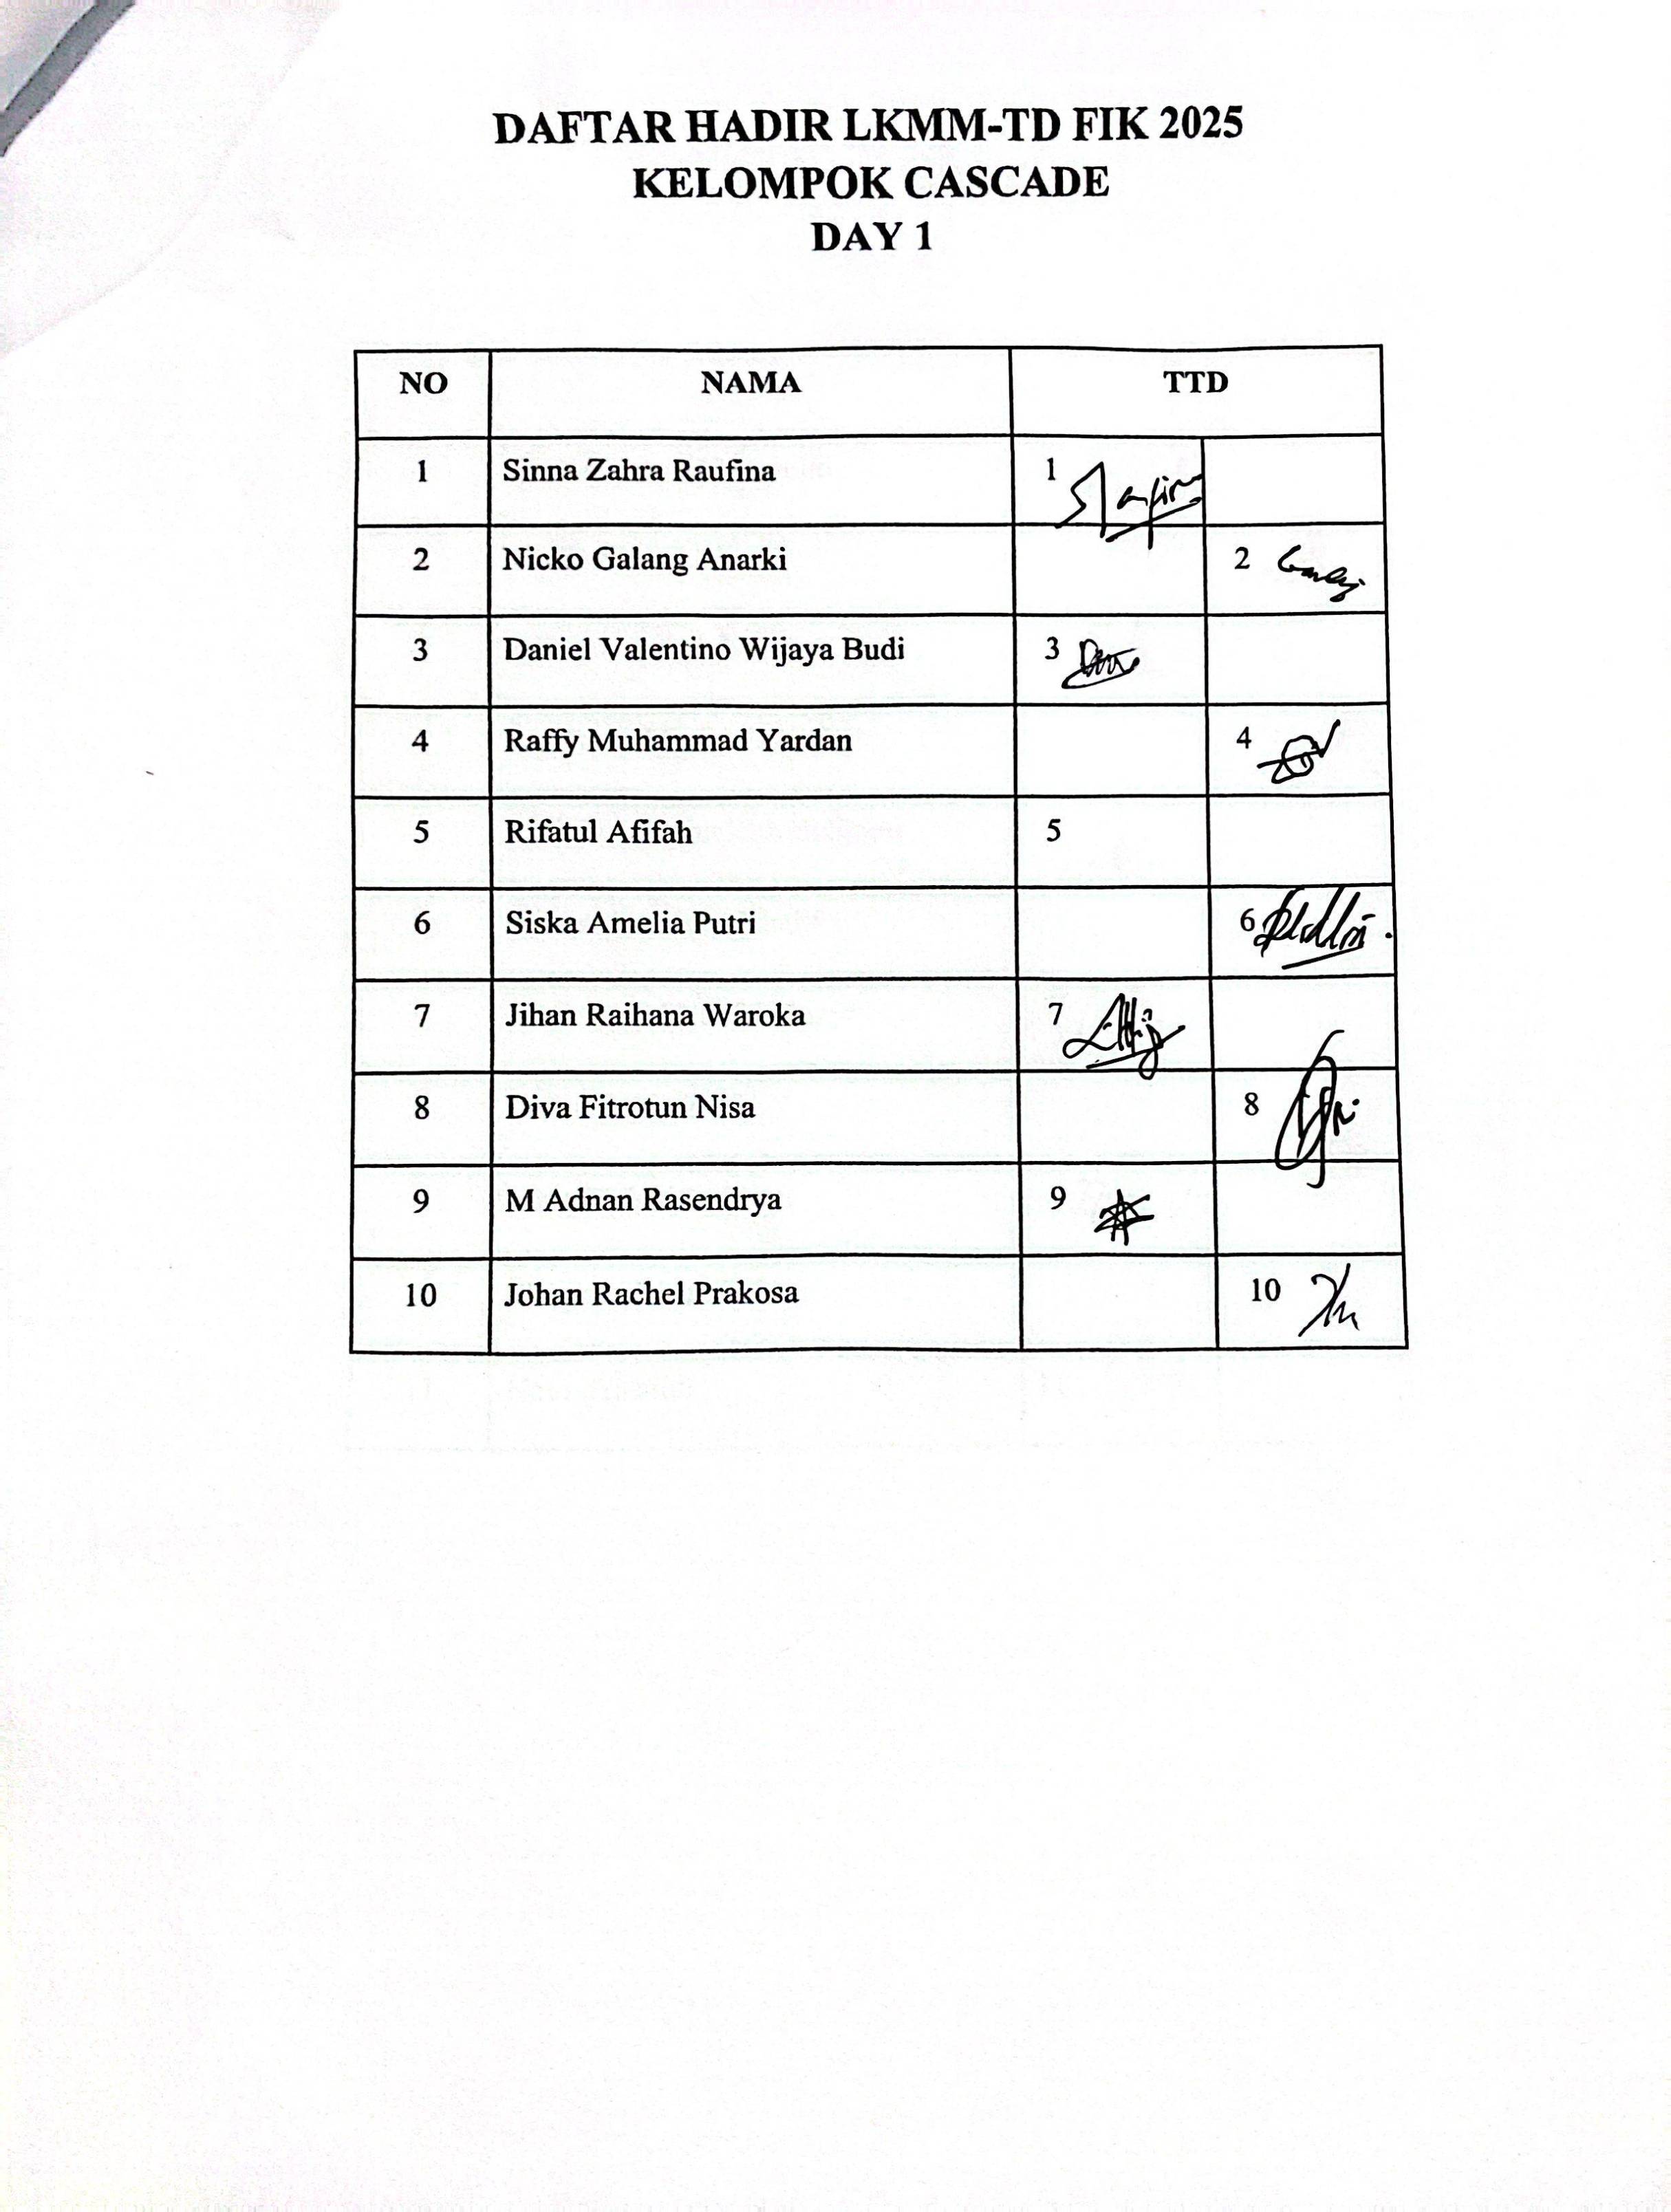 DAFTAR HADIR LKMM-TD FIK 2025
KELOMPOK CASCADE
DAY 1
NO NAMA TTD
1 Sinna Zahra Raufina 1
2 Nicko Galang Anarki 2
3 Daniel Valentino Wijaya Budi 3
4 Raffy Muhammad Yardan 4
5 Rifatul Afifah 5
6 Siska Amelia Putri 6
7 Jihan Raihana Waroka 7
8 Diva Fitrotun Nisa 8
9 M Adnan Rasendrya 9
10 Johan Rachel Prakosa 10